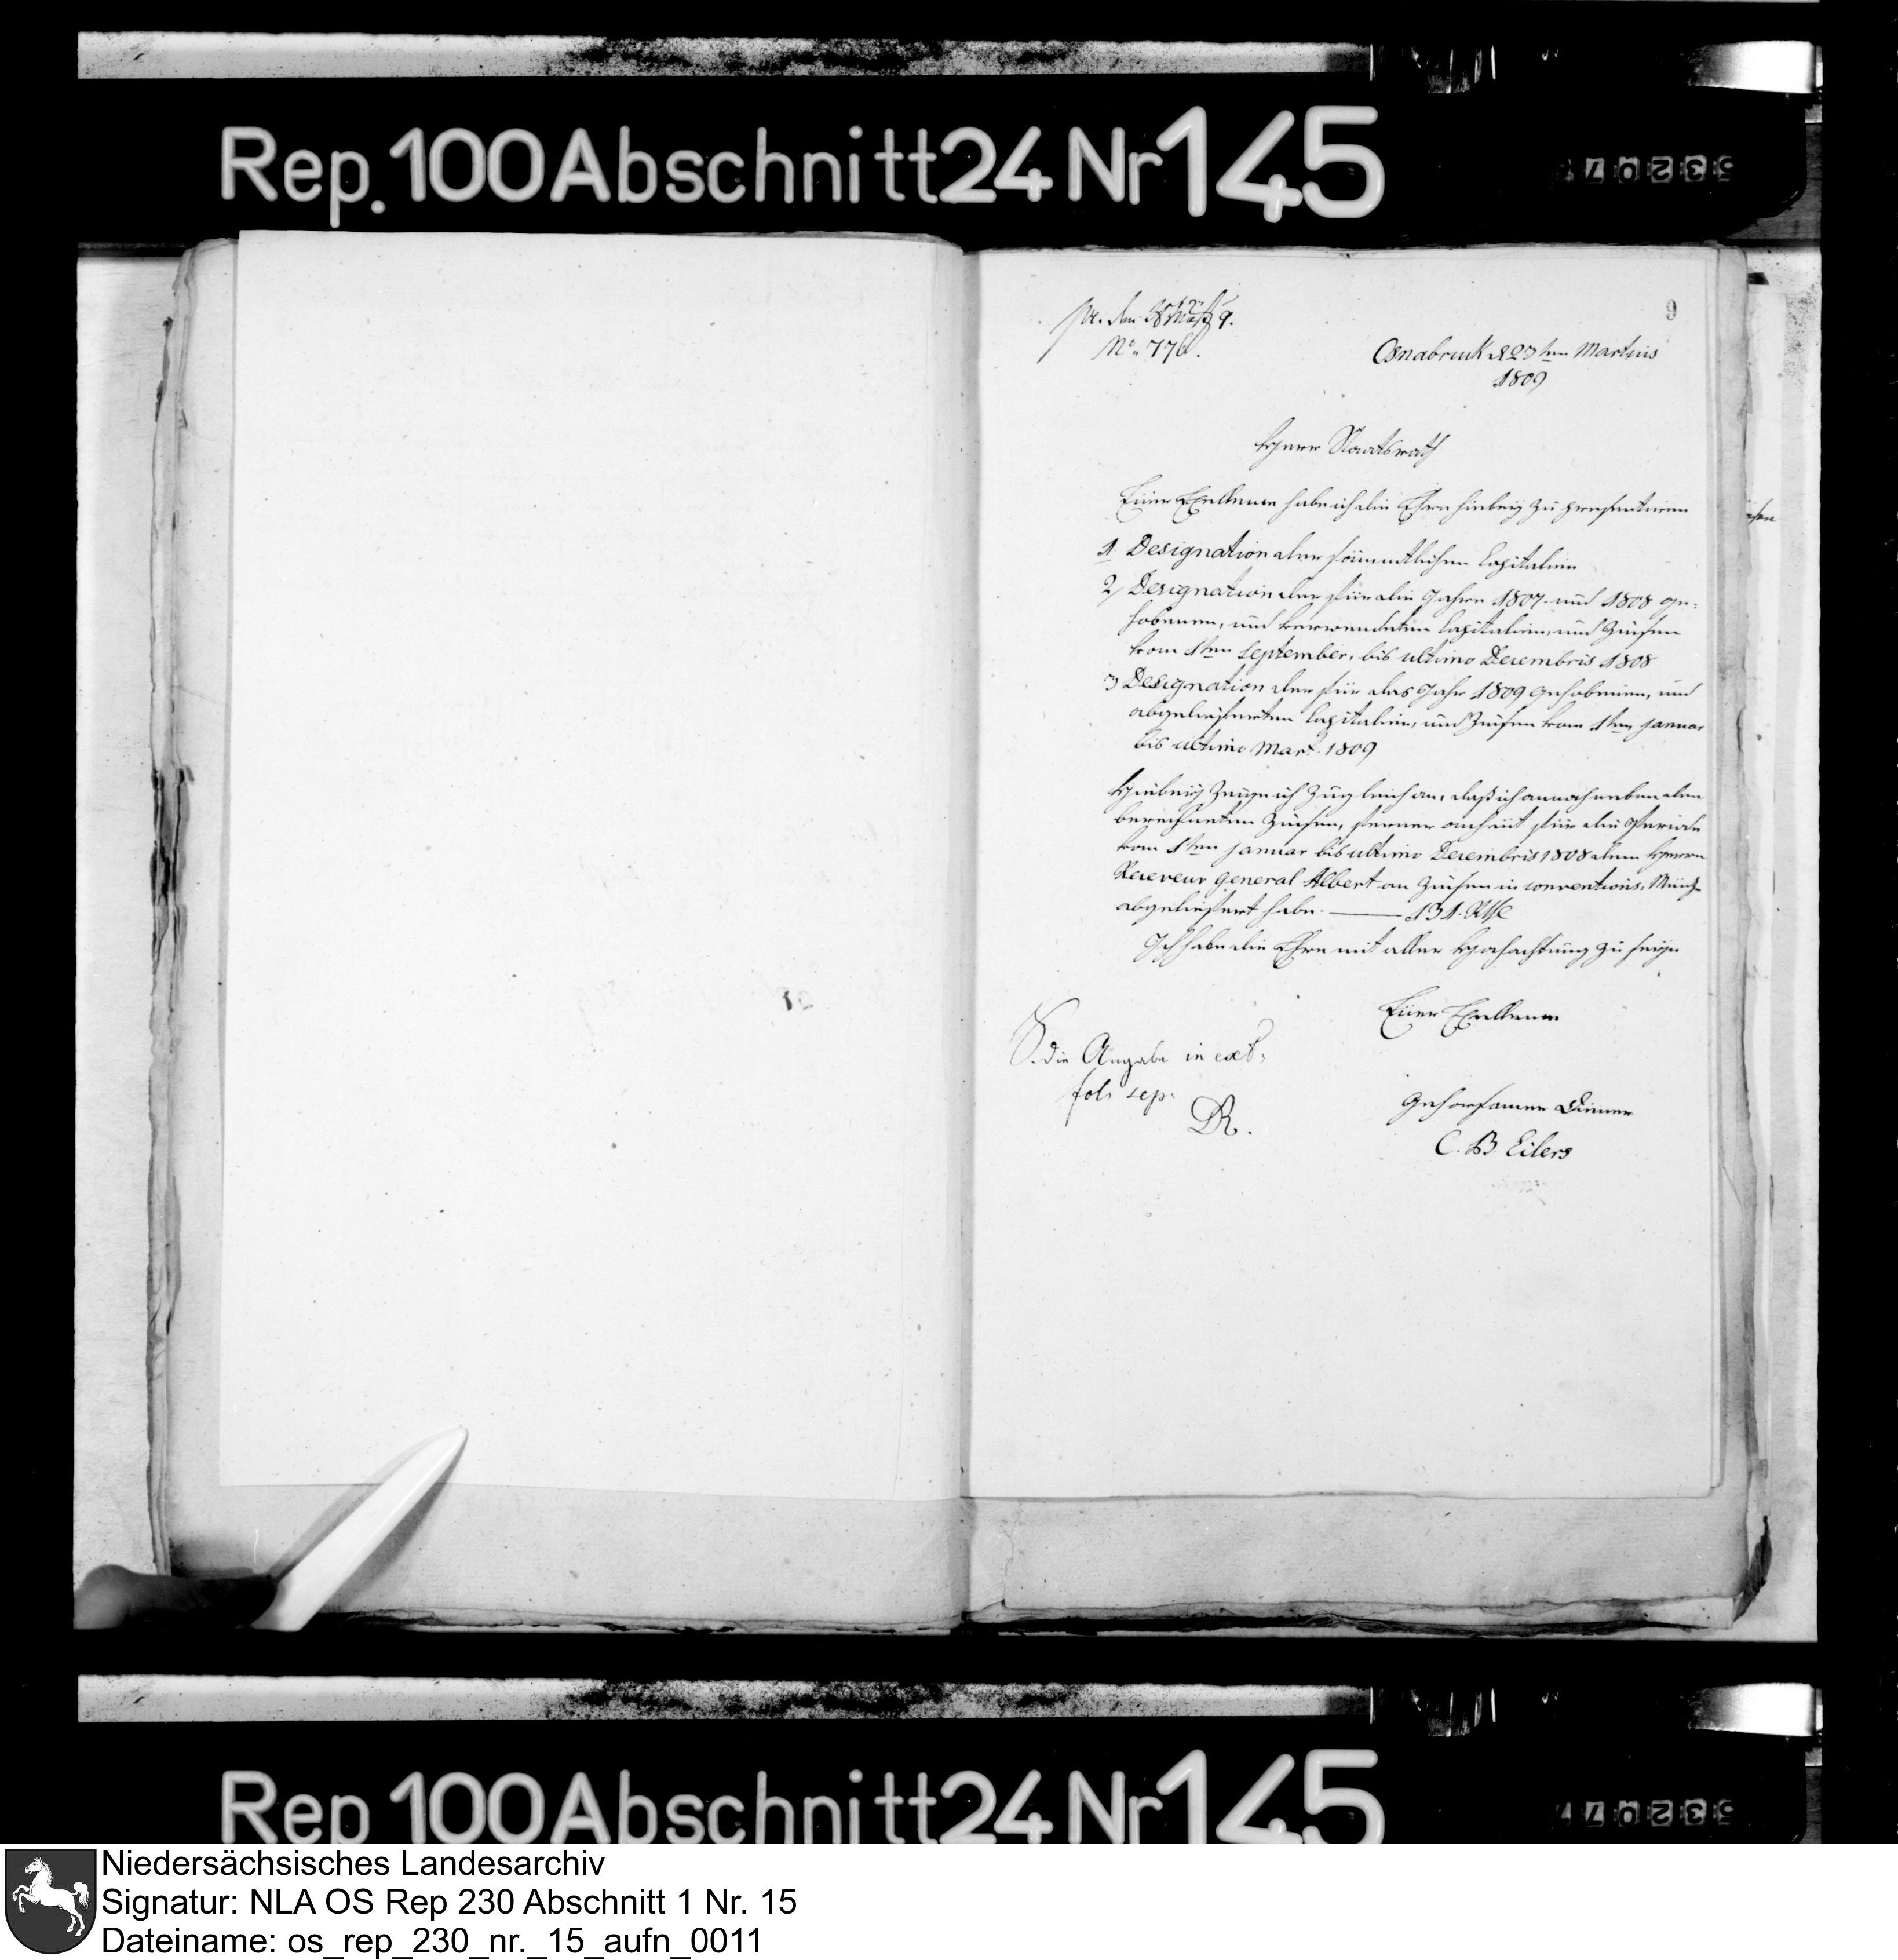 Rep. 100 Abschnitt 24 Nr 145
9
pr. den 28 März 9.
No. 776.
Osnabruck d 23ten Martius
1809
Herr Staatsrath
Euer Excellence habe ich die Ehre hiebeÿ zu presentiren
1. Designation der sämmtlichen Capitalien
2, Designation der für die Jahre 1807 und 1808 ge-
hobenen, und verwendeten Capitalien, und Zinsen
vom 1ten September, bis ultimo Decembris 1808
3 Designation der für das Jahr 1809 gehobenen, und
abgelieferten Capitalien, und Zinsen vom 1ten Januar
bis ultimo Mart. 1809
Hiebeÿ zeige ich zugleich an, daß ich annoch neben den
berechneten Zinsen, ferner für die Periode
vom 1ten Januar bis ultimo Decembris 1808 dem Herrn
Receveur general Albert an Zinsen in conventions, Münze
abgeliefert habe. — 131. Rth
Ich habe die Ehre mit aller Hochachtung zu seÿn
Euer Excellence
S. die Angabe in
fol. sep.
R.
gehorsamer Diener
C. B. Eilers
Rep 100 Abschnitt 24 Nr 145
Niedersächsisches Landesarchiv
Signatur: NLA OS Rep 230 Abschnitt 1 Nr. 15
Dateiname: os_rep_230_nr._15_aufn_0011